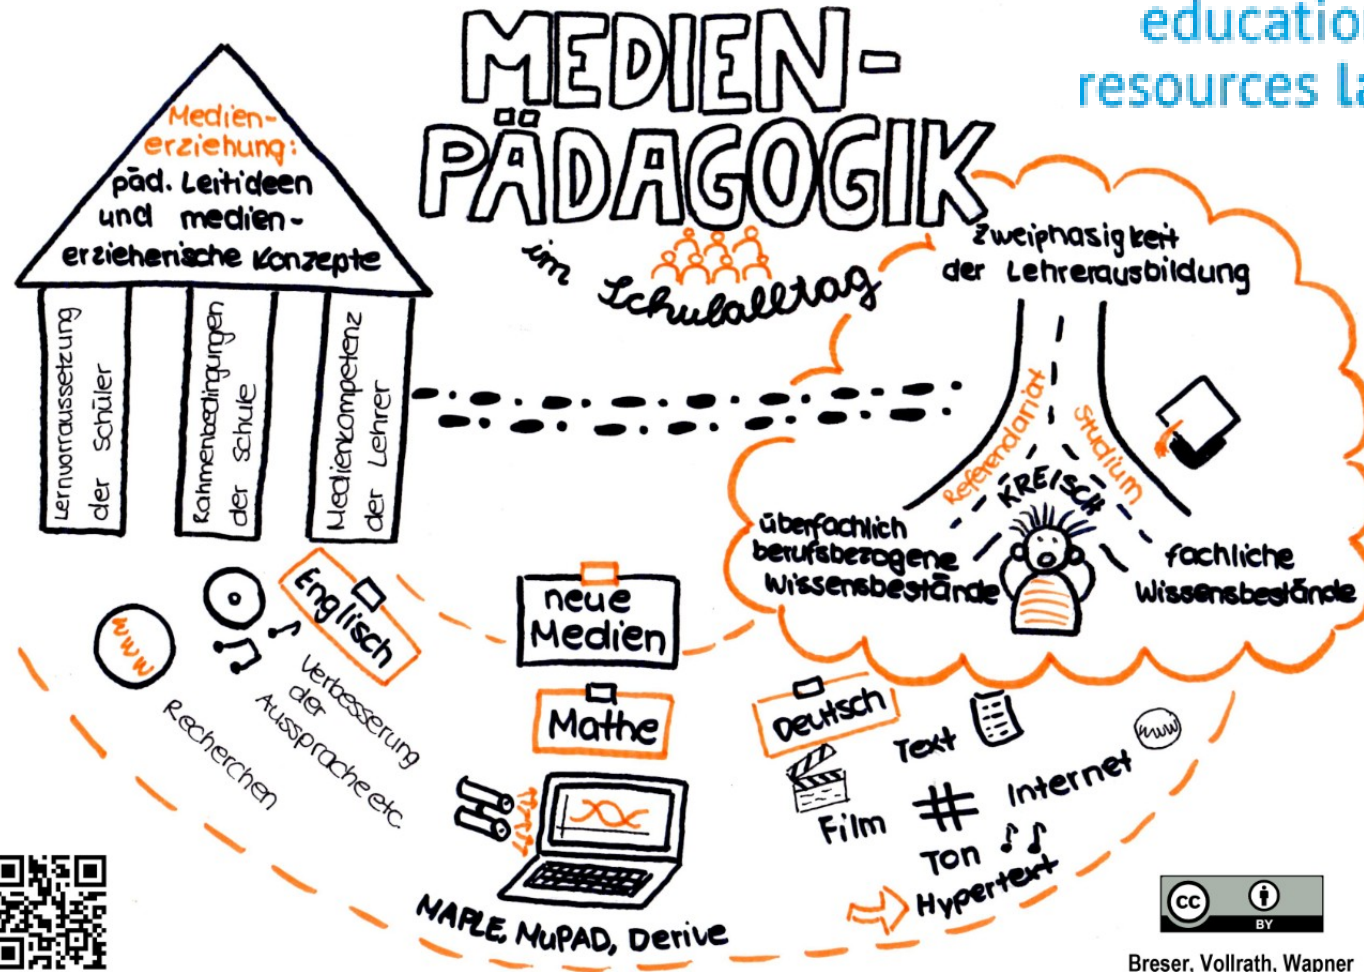 MEDIEN-
PÄDAGOGIK
im Schulalltag
education
resources la
Medien-
erziehung:
päd. Leitideen
und medien-
erzieherische Konzepte
Lernvoraussetzung
der Schüler
Rahmenbedingungen
der Schule
Medienkompetenz
der Lehrer
Zweiphasigkeit
der Lehrerausbildung
Referendariat
Studium
KREISCH
überfachlich
berufsbezogene
Wissensbestände
fachliche
Wissensbestände
neue
Medien
Englisch
www
Recherchen
Verbesserung
der
Aussprache etc.
Mathe
MAPLE, MuPAD, Derive
Deutsch
Text
Film
#
Internet
www
Ton
Hypertext
cc
BY
Breser, Vollrath, Wagner